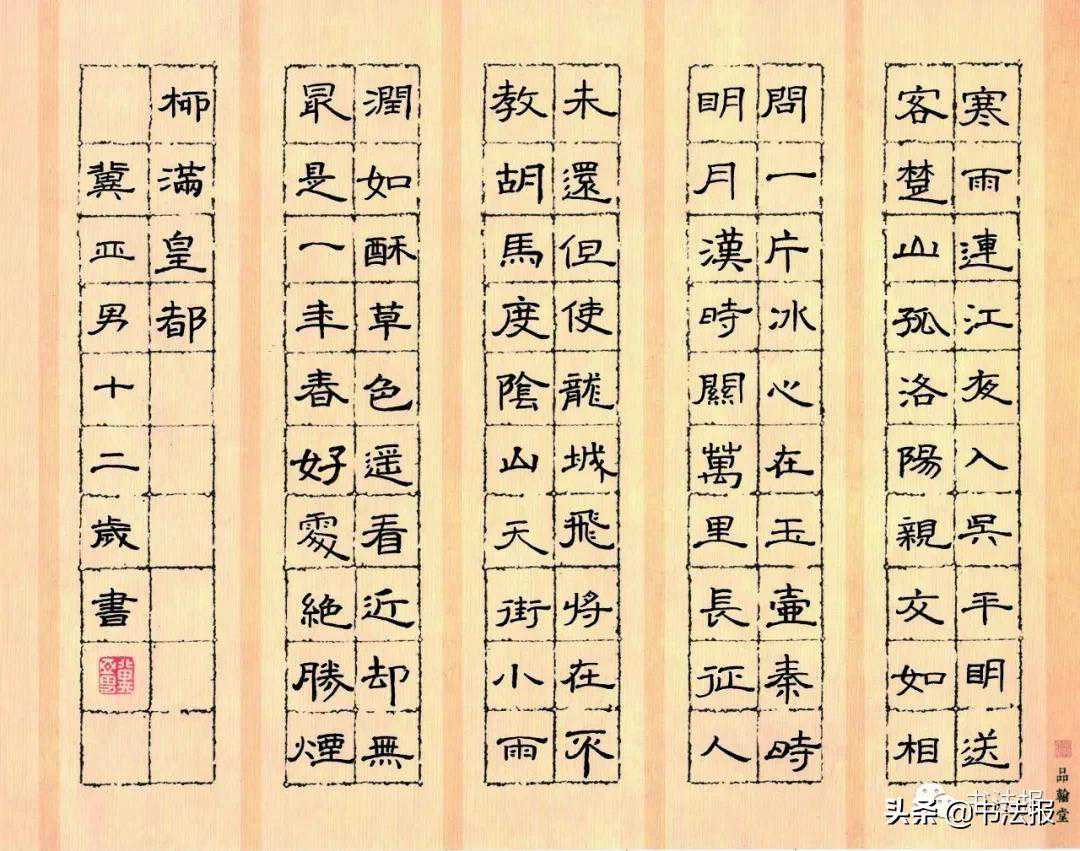 寒雨連江夜入吳平明送
客楚山孤洛陽親友如相
問一片冰心在玉壺秦時
明月漢時關萬里長征人
未還但使龍城飛將在不
教胡馬度陰山天街小雨
潤如酥草色遥看近却無
最是一年春好處絕勝煙
柳滿皇都
冀亞男十二歲書
品翰堂
书法报
头条 @书法报